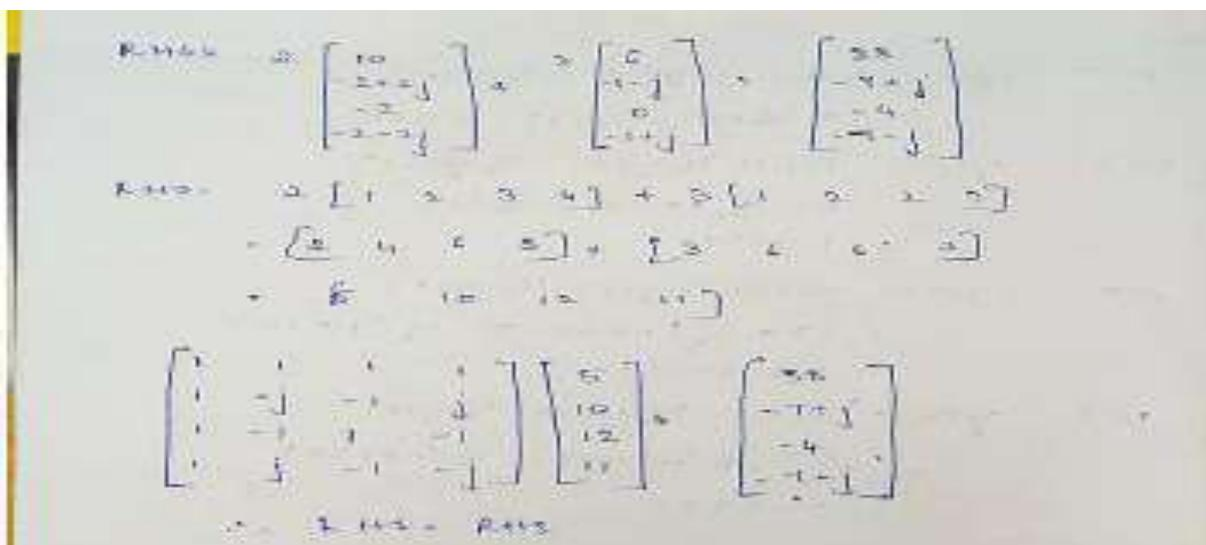 2 [ 10 -2+2j -2 -2-2j ] + 3 [ 6 -1-j 0 -1+j ] = [ 38 -7+j -4 -7-j ]
2 [ 1 2 3 4 ] + 3 [ 1 2 2 1 ]
4 6 + [ 3 6 6 3 ]
10 12 11 ]
[ 1 1 1 1
1 -j -1 j
1 -1 1 -1
1 j -1 -j ] [ 5 10 12 11 ] = [ 38 -7+j -4 -7-j ]
∴ LHS = RHS